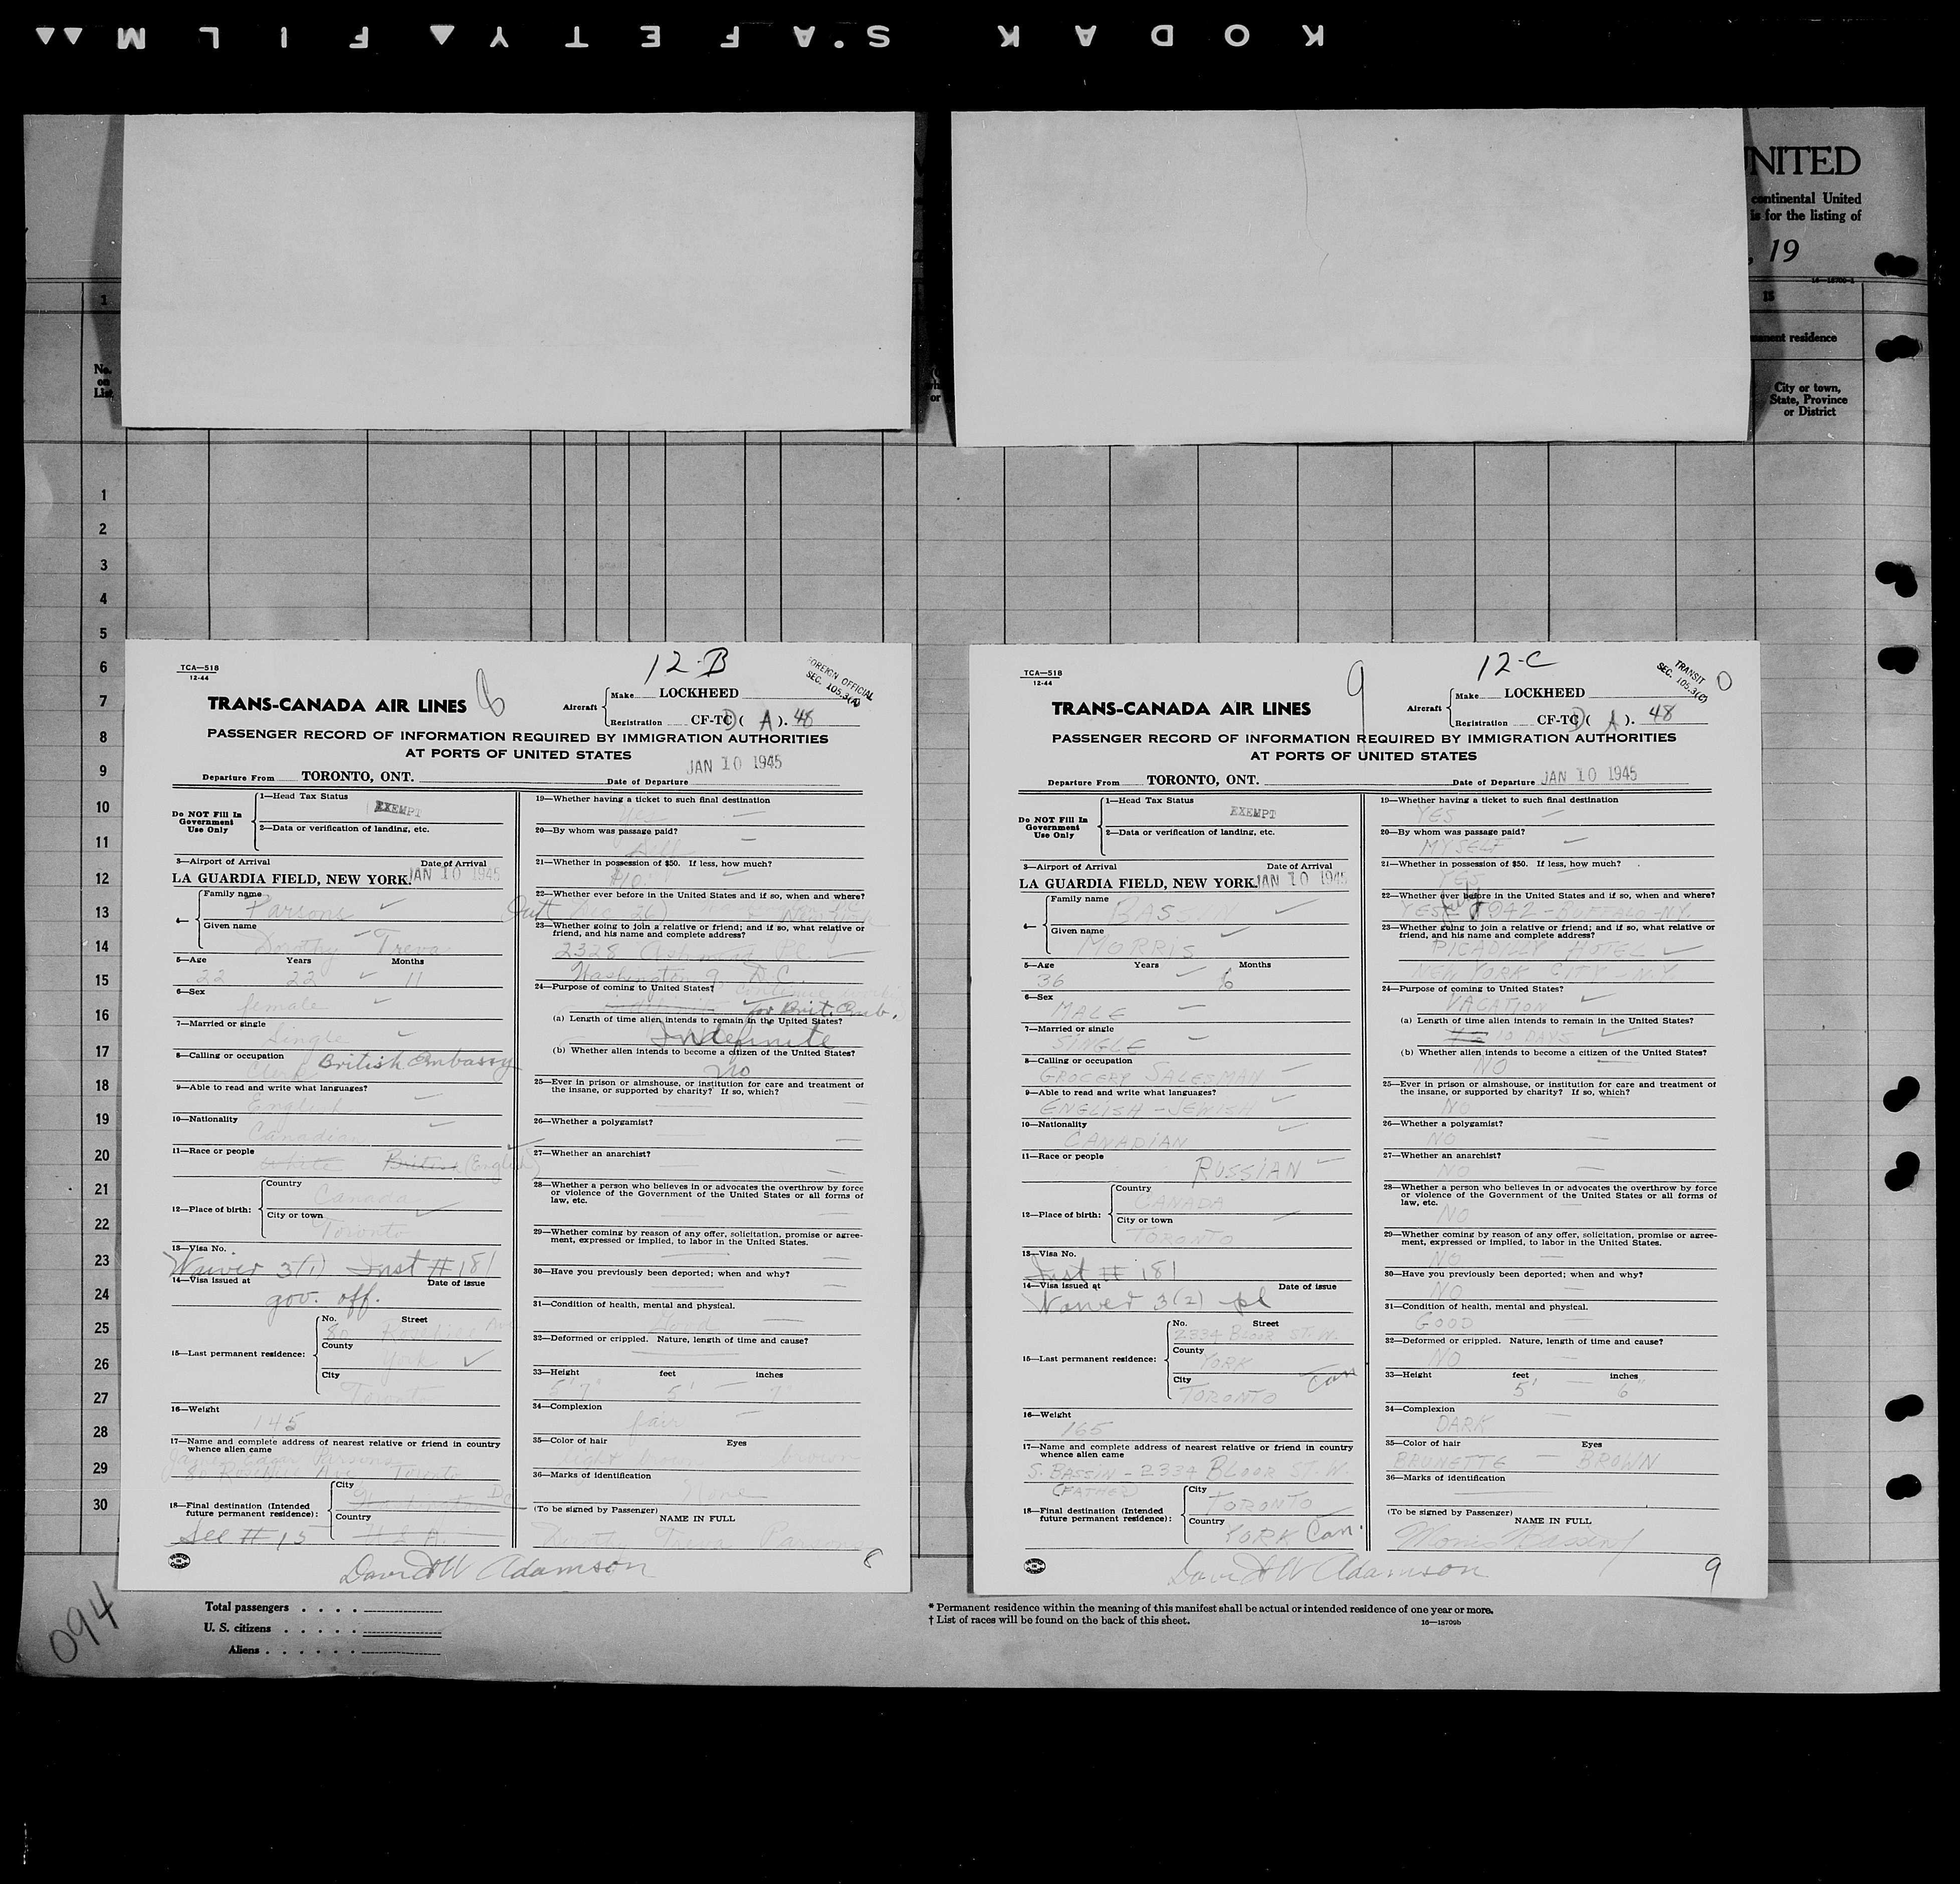 KODAK SAFETY FILM
UNITED
continental United
is for the listing of
, 19
16—18709-1
1
15
permanent residence
No.
on
List
or
City or town,
State, Province
or District
1
2
3
4
5
6
7
8
9
10
11
12
13
14
15
16
17
18
19
20
21
22
23
24
25
26
27
28
29
30
TCA—518
12-44
12-B
FOREIGN OFFICIAL
SEC. 105.3(A)
TRANS-CANADA AIR LINES
8
Aircraft
Make LOCKHEED
Registration CF-TC D ( A ). 48
PASSENGER RECORD OF INFORMATION REQUIRED BY IMMIGRATION AUTHORITIES
AT PORTS OF UNITED STATES
Departure From TORONTO, ONT. Date of Departure JAN 10 1945
Do NOT Fill In
Government
Use Only
1—Head Tax Status
EXEMPT
2—Data or verification of landing, etc.
3—Airport of Arrival Date of Arrival
LA GUARDIA FIELD, NEW YORK. JAN 10 1945
4—
Family name
Parsons
Given name
Dorothy Treva
5—Age Years Months
22 22 11
6—Sex
female
7—Married or single
Single
8—Calling or occupation British Embassy
Clerk
9—Able to read and write what languages?
English
10—Nationality
Canadian
11—Race or people
white British (English)
12—Place of birth:
Country
Canada
City or town
Toronto
13—Visa No.
Waiver 3(1) Inst # 181
14—Visa issued at Date of issue
gov. off.
15—Last permanent residence:
No. Street
County
York
City
Toronto
16—Weight
145
17—Name and complete address of nearest relative or friend in country
whence alien came
Parsons
Toronto
18—Final destination (Intended
future permanent residence):
City
Washington DC
Country
See # 15
U.S.A.
19—Whether having a ticket to such final destination
Yes
20—By whom was passage paid?
21—Whether in possession of $50. If less, how much?
$10
22—Whether ever before in the United States and if so, when and where?
New York
23—Whether going to join a relative or friend; and if so, what relative or
friend, and his name and complete address?
2328 Ashmead Pl.
Washington 9 D.C.
24—Purpose of coming to United States? continue work
for Brit. Emb.
(a) Length of time alien intends to remain in the United States?
Indefinite
(b) Whether alien intends to become a citizen of the United States?
No
25—Ever in prison or almshouse, or institution for care and treatment of
the insane, or supported by charity? If so, which?
26—Whether a polygamist?
27—Whether an anarchist?
28—Whether a person who believes in or advocates the overthrow by force
or violence of the Government of the United States or all forms of
law, etc.
29—Whether coming by reason of any offer, solicitation, promise or agree-
ment, expressed or implied, to labor in the United States.
30—Have you previously been deported; when and why?
31—Condition of health, mental and physical.
Good
32—Deformed or crippled. Nature, length of time and cause?
33—Height feet inches
5'7" 5' 7"
34—Complexion
fair
35—Color of hair Eyes
light brown brown
36—Marks of identification
None
(To be signed by Passenger)
NAME IN FULL
Dorothy Treva Parsons
David W Adamson
8
TCA—518
12-44
12-C
TRANSIT
SEC. 105.3(C)
0
TRANS-CANADA AIR LINES
9
Aircraft
Make LOCKHEED
Registration CF-TC D ( A ). 48
PASSENGER RECORD OF INFORMATION REQUIRED BY IMMIGRATION AUTHORITIES
AT PORTS OF UNITED STATES
Departure From TORONTO, ONT. Date of Departure JAN 10 1945
Do NOT Fill In
Government
Use Only
1—Head Tax Status
EXEMPT
2—Data or verification of landing, etc.
3—Airport of Arrival Date of Arrival
LA GUARDIA FIELD, NEW YORK. JAN 10 1945
4—
Family name
BASSIN
Given name
MORRIS
5—Age Years Months
36 6
6—Sex
MALE
7—Married or single
SINGLE
8—Calling or occupation
GROCERY SALESMAN
9—Able to read and write what languages?
ENGLISH - JEWISH
10—Nationality
CANADIAN
11—Race or people
RUSSIAN
12—Place of birth:
Country
CANADA
City or town
TORONTO
13—Visa No.
Inst # 181
14—Visa issued at Date of issue
Waiver 3(2) - pl
15—Last permanent residence:
No. Street
2334 BLOOR ST. W.
County
YORK
City
TORONTO Can
16—Weight
165
17—Name and complete address of nearest relative or friend in country
whence alien came
S. BASSIN - 2334 BLOOR ST. W.
(FATHER)
18—Final destination (Intended
future permanent residence):
City
TORONTO
Country
YORK Can.
19—Whether having a ticket to such final destination
YES
20—By whom was passage paid?
MYSELF
21—Whether in possession of $50. If less, how much?
YES
22—Whether ever before in the United States and if so, when and where?
YES - July 1942 - BUFFALO - N.Y.
23—Whether going to join a relative or friend; and if so, what relative or
friend, and his name and complete address?
PICADILLY HOTEL
NEW YORK CITY - N.Y.
24—Purpose of coming to United States?
VACATION
(a) Length of time alien intends to remain in the United States?
10 DAYS
(b) Whether alien intends to become a citizen of the United States?
NO
25—Ever in prison or almshouse, or institution for care and treatment of
the insane, or supported by charity? If so, which?
NO
26—Whether a polygamist?
NO
27—Whether an anarchist?
NO
28—Whether a person who believes in or advocates the overthrow by force
or violence of the Government of the United States or all forms of
law, etc.
NO
29—Whether coming by reason of any offer, solicitation, promise or agree-
ment, expressed or implied, to labor in the United States.
NO
30—Have you previously been deported; when and why?
NO
31—Condition of health, mental and physical.
GOOD
32—Deformed or crippled. Nature, length of time and cause?
NO
33—Height feet inches
5' 6"
34—Complexion
DARK
35—Color of hair Eyes
BRUNETTE - BROWN
36—Marks of identification
(To be signed by Passenger)
NAME IN FULL
Morris Bassin
David W Adamson
9
094
Total passengers . . . .
U. S. citizens . . . . .
Aliens . . . . . .
* Permanent residence within the meaning of this manifest shall be actual or intended residence of one year or more.
† List of races will be found on the back of this sheet.
16—18709b